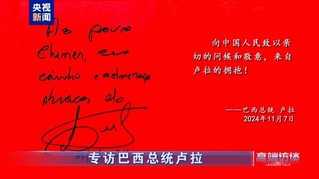 央视新闻
Ao povo
Chines, com
carinho e admiração
Abraço do
向中国人民致以亲
切的问候和敬意，来自
卢拉的拥抱！
——巴西总统 卢拉
2024年11月7日
专访巴西总统卢拉
高端访谈